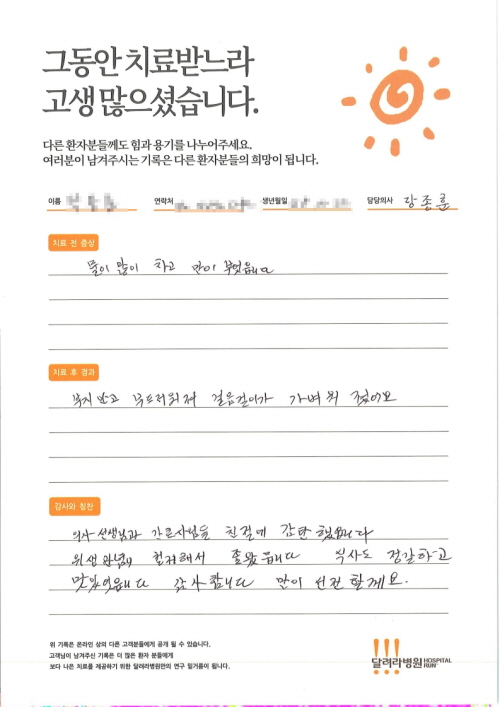 그동안 치료받느라
고생 많으셨습니다.
다른 환자분들께도 힘과 용기를 나누어주세요.
여러분이 남겨주시는 기록은 다른 환자분들의 희망이 됩니다.
이름 연락처 생년월일 담당의사 장종훈
치료 전 증상
물이 많이 차고 많이 부엇읍니다
치료 후 경과
붓지 안고 부드러워져 걸음걸이가 가벼워 졌어요
감사와 칭찬
의사 선생님과 간호사님들 친절에 감탄 했읍니다
위생관념이 철저해서 좋왔읍니다 식사도 정갈하고
맛있엇읍니다 감사합니다 많이 선전 할께요.
위 기록은 온라인 상의 다른 고객분들에게 공개 될 수 있습니다.
고객님이 남겨주신 기록은 더 많은 환자 분들에게
보다 나은 치료를 제공하기 위한 달려라병원만의 연구 밑거름이 됩니다.
달려라병원 HOSPITAL RUN